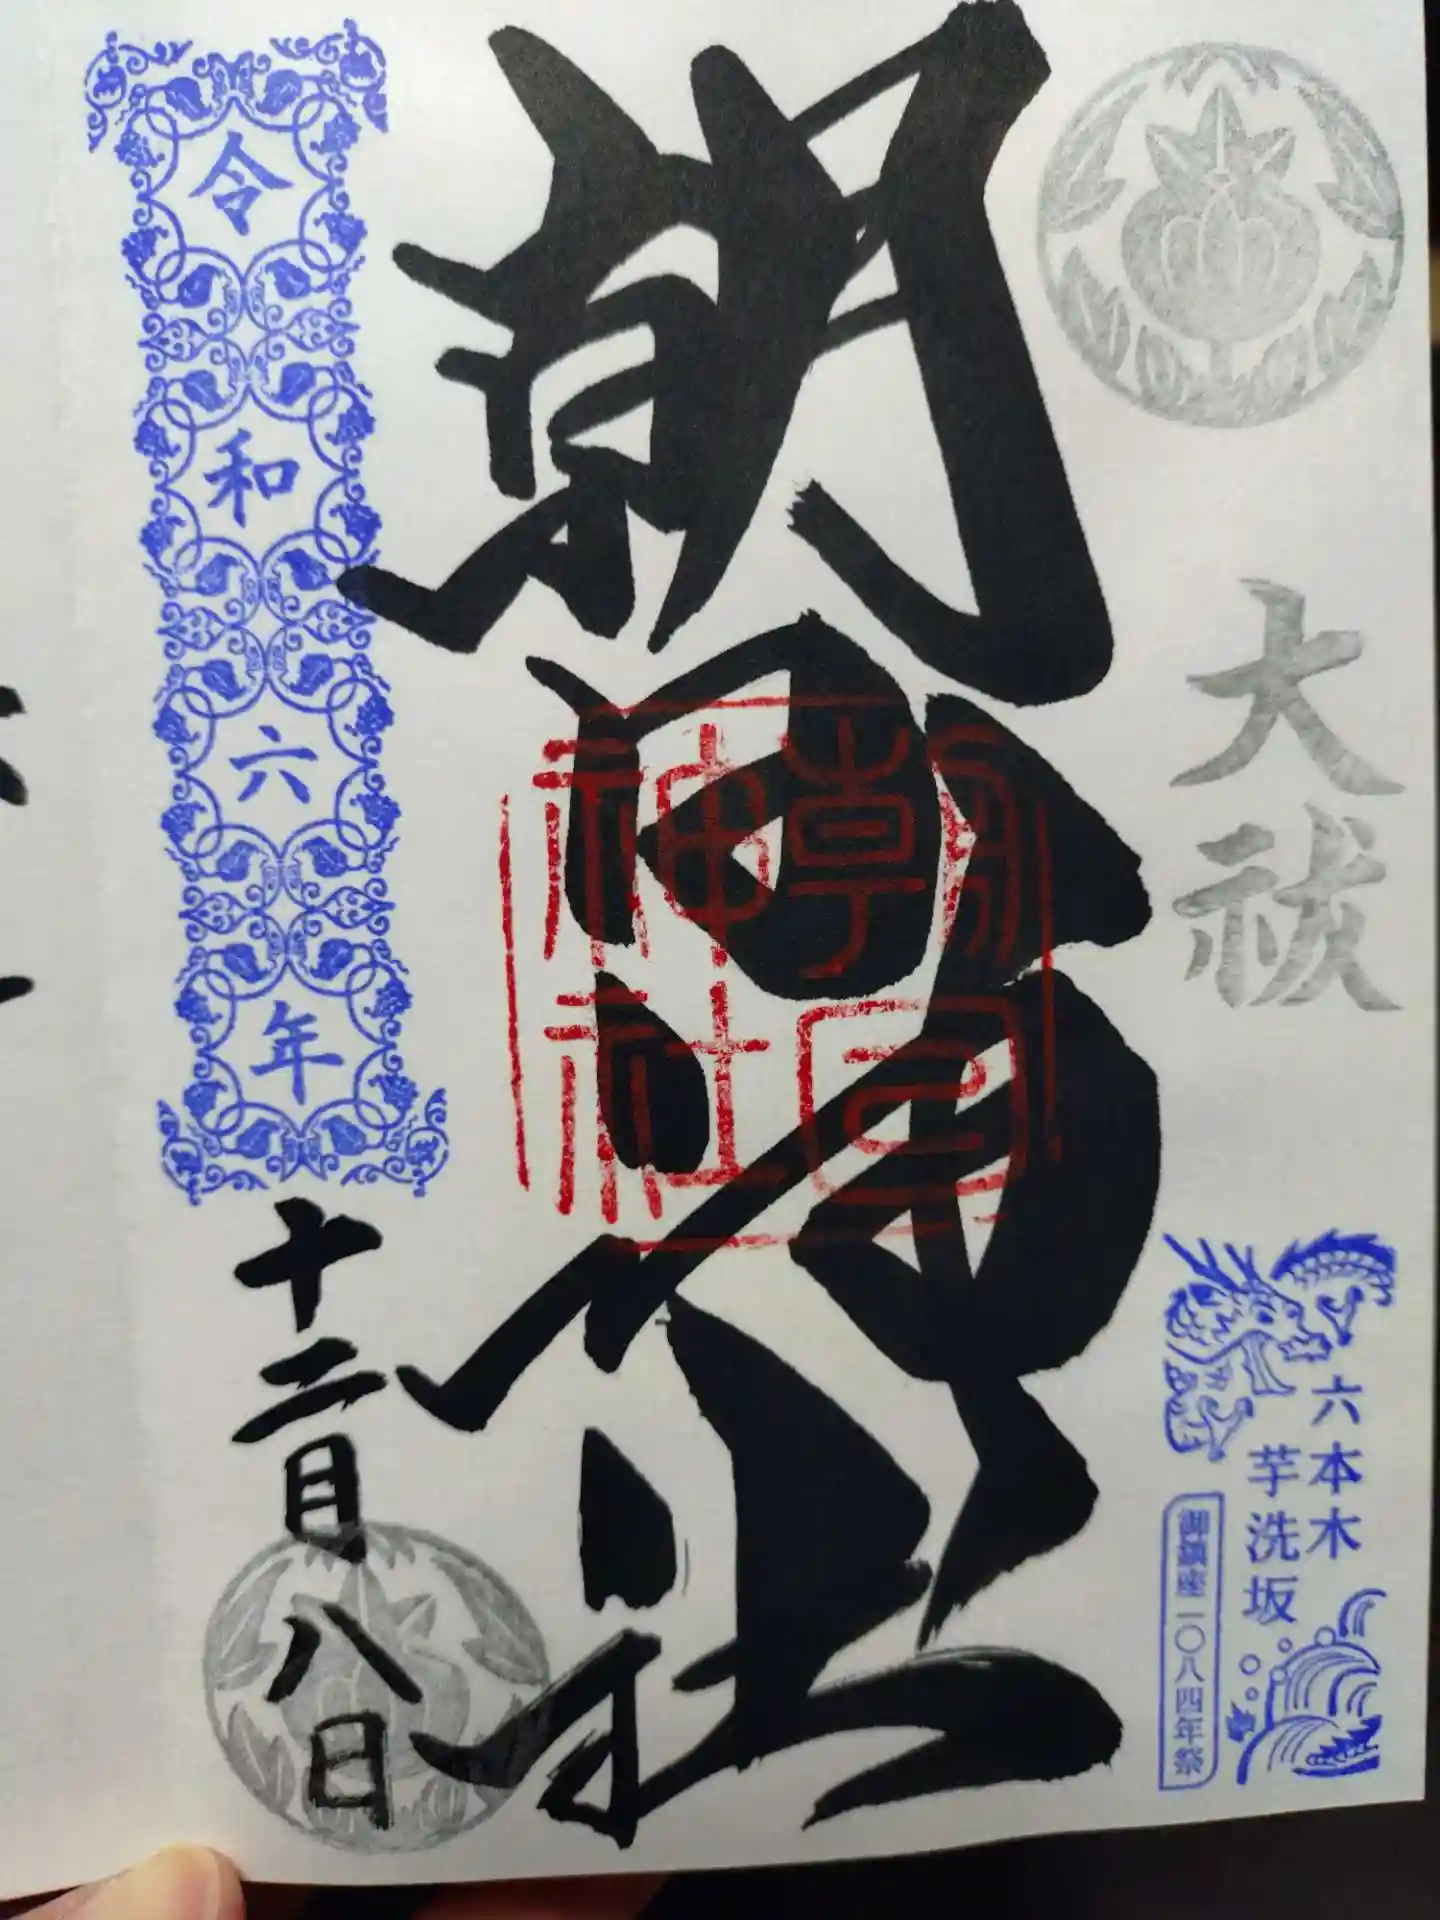 大祓
六本木
芋洗坂
御鎮座一〇八四年祭
朝日神社
朝日神社
令和六年
十二月八日